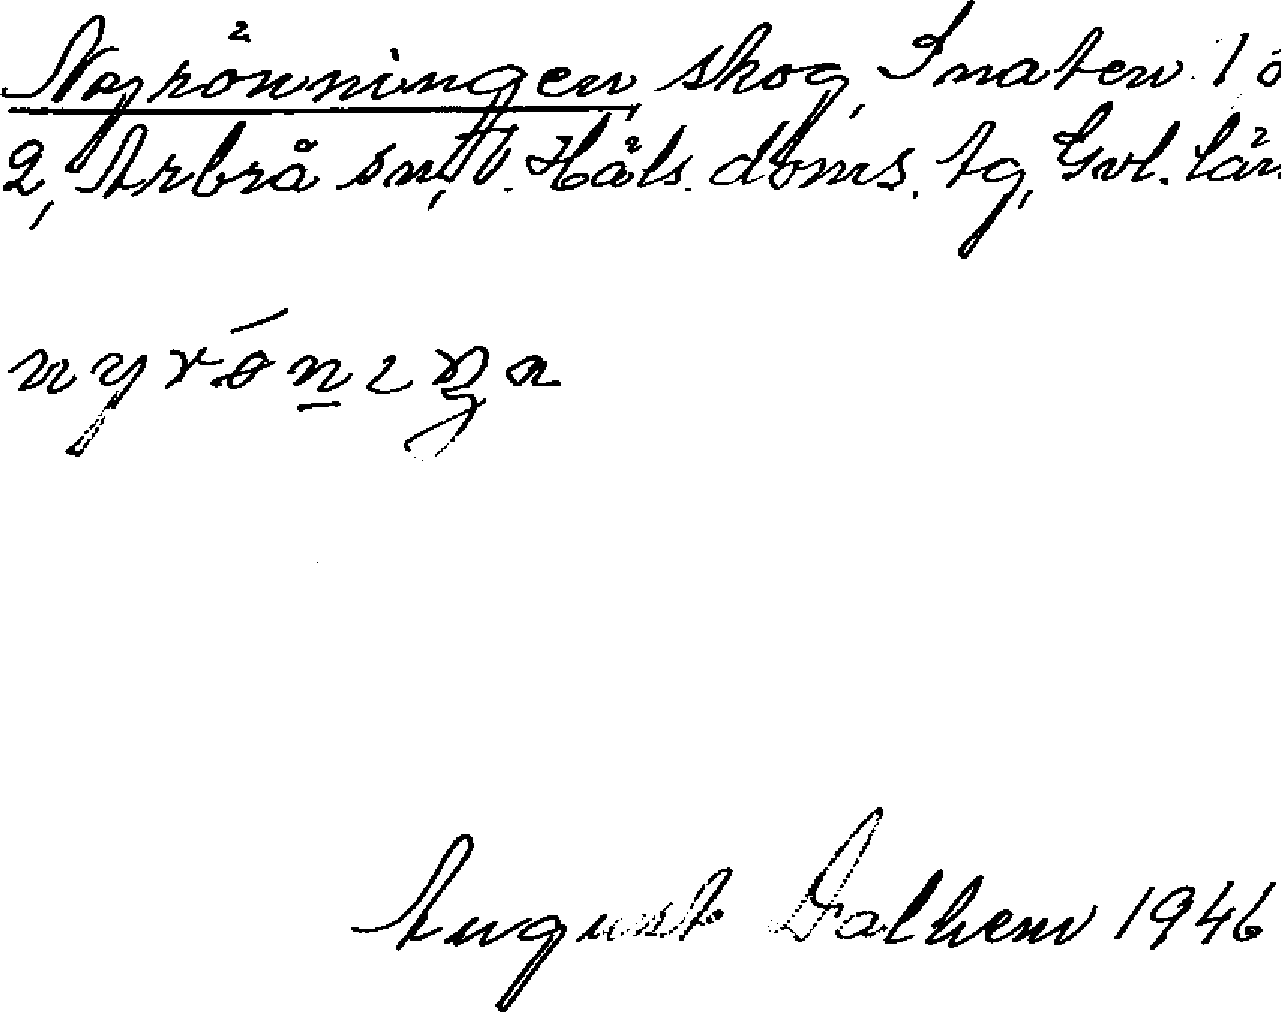 Nyrönningen, skog, Snaten 1 o
2, Arbrå sn, V. Häls. doms. tg, Gvl. län
nyrönıŋa
August Dalhem 1946